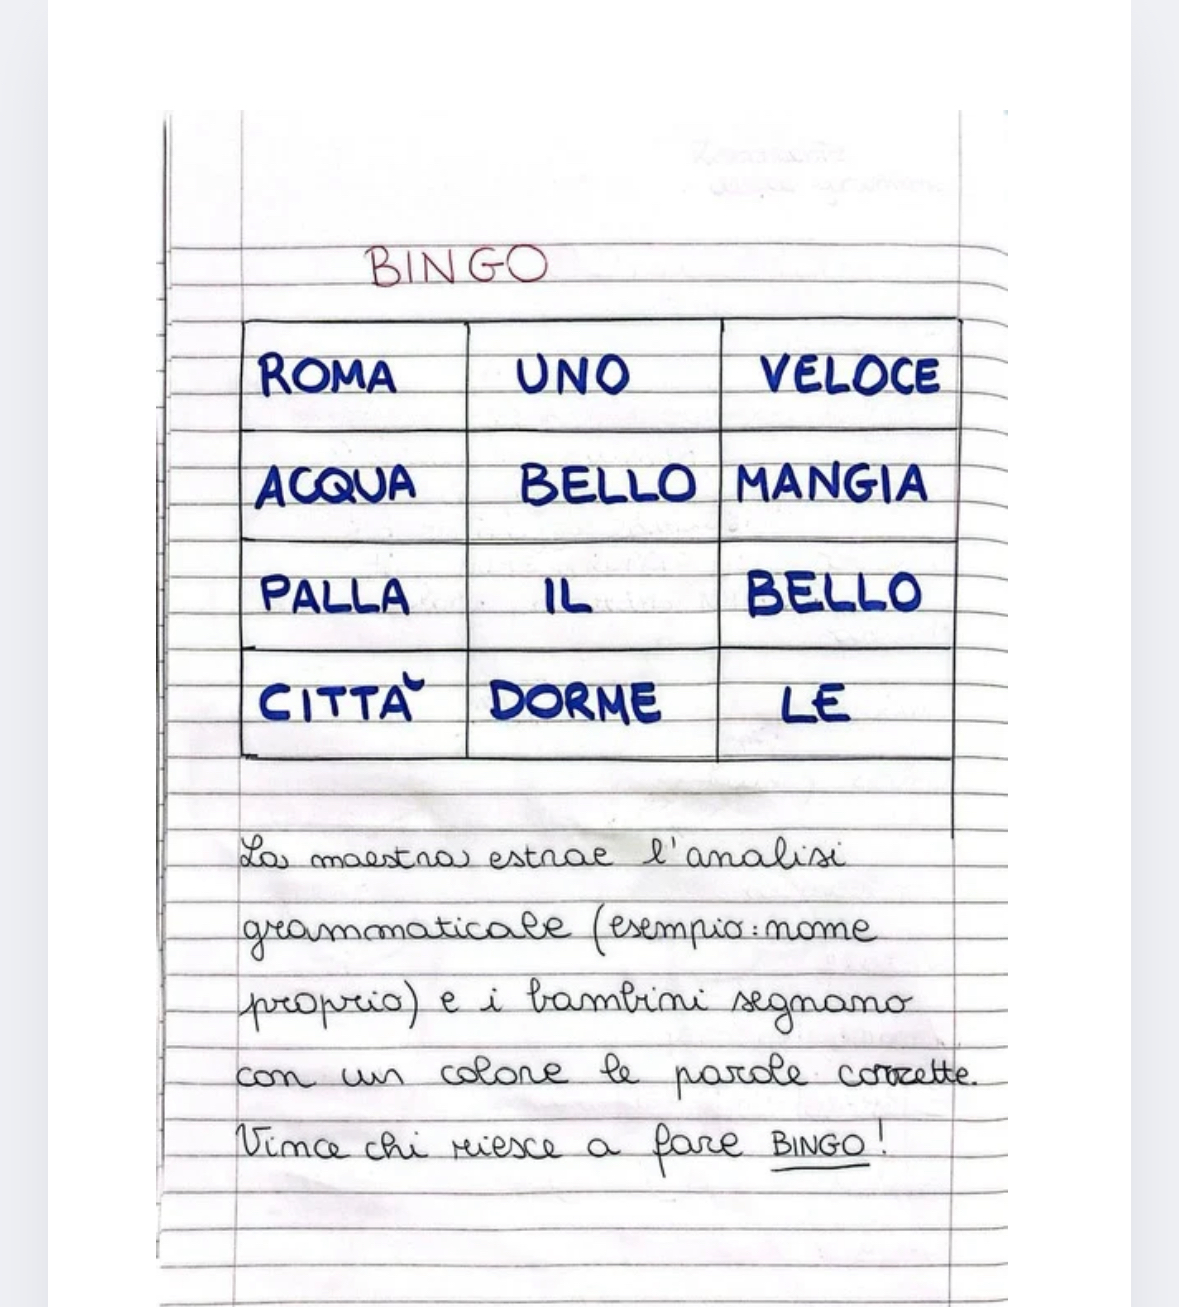 BINGO
ROMA UNO VELOCE
ACQUA BELLO MANGIA
PALLA IL BELLO
CITTÀ DORME LE
La maestra estrae l'analisi
grammaticale (esempio: nome
proprio) e i bambini segnano
con un colore le parole corrette.
Vince chi riesce a fare BINGO!